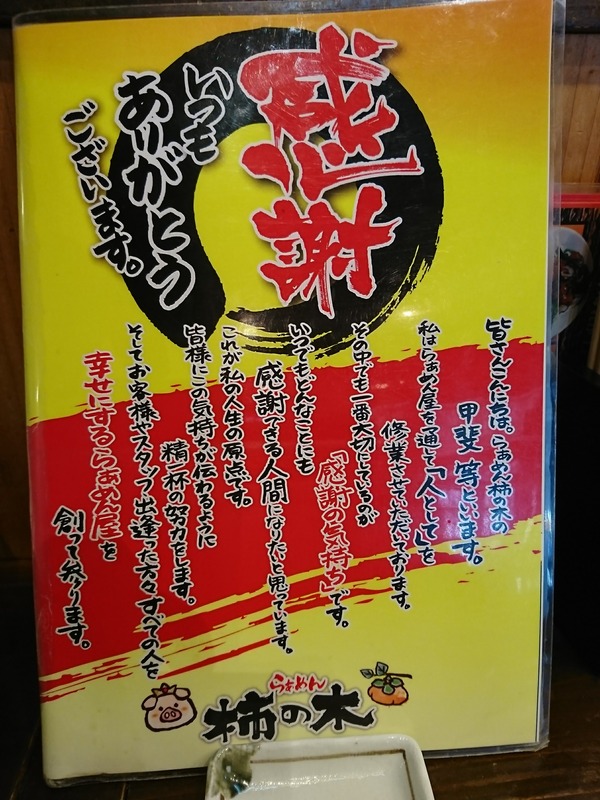 感謝
いつも
ありがとう
ございます。
皆さんこんにちは。らぁめん柿の木の
甲斐 等といいます。
私はらぁめん屋を通して「人として」を
修業させていただいております。
その中でも一番大切にしているのが
「感謝の気持ち」です。
いつでもどんなことにも
感謝できる人間になりたいと思っています。
これが私の人生の原点です。
皆様にこの気持ちが伝わるように
精一杯の努力をします。
そしてお客様やスタッフ、出逢った方々すべての人を
幸せにするらぁめん屋を
創って参ります。
らぁめん
柿の木